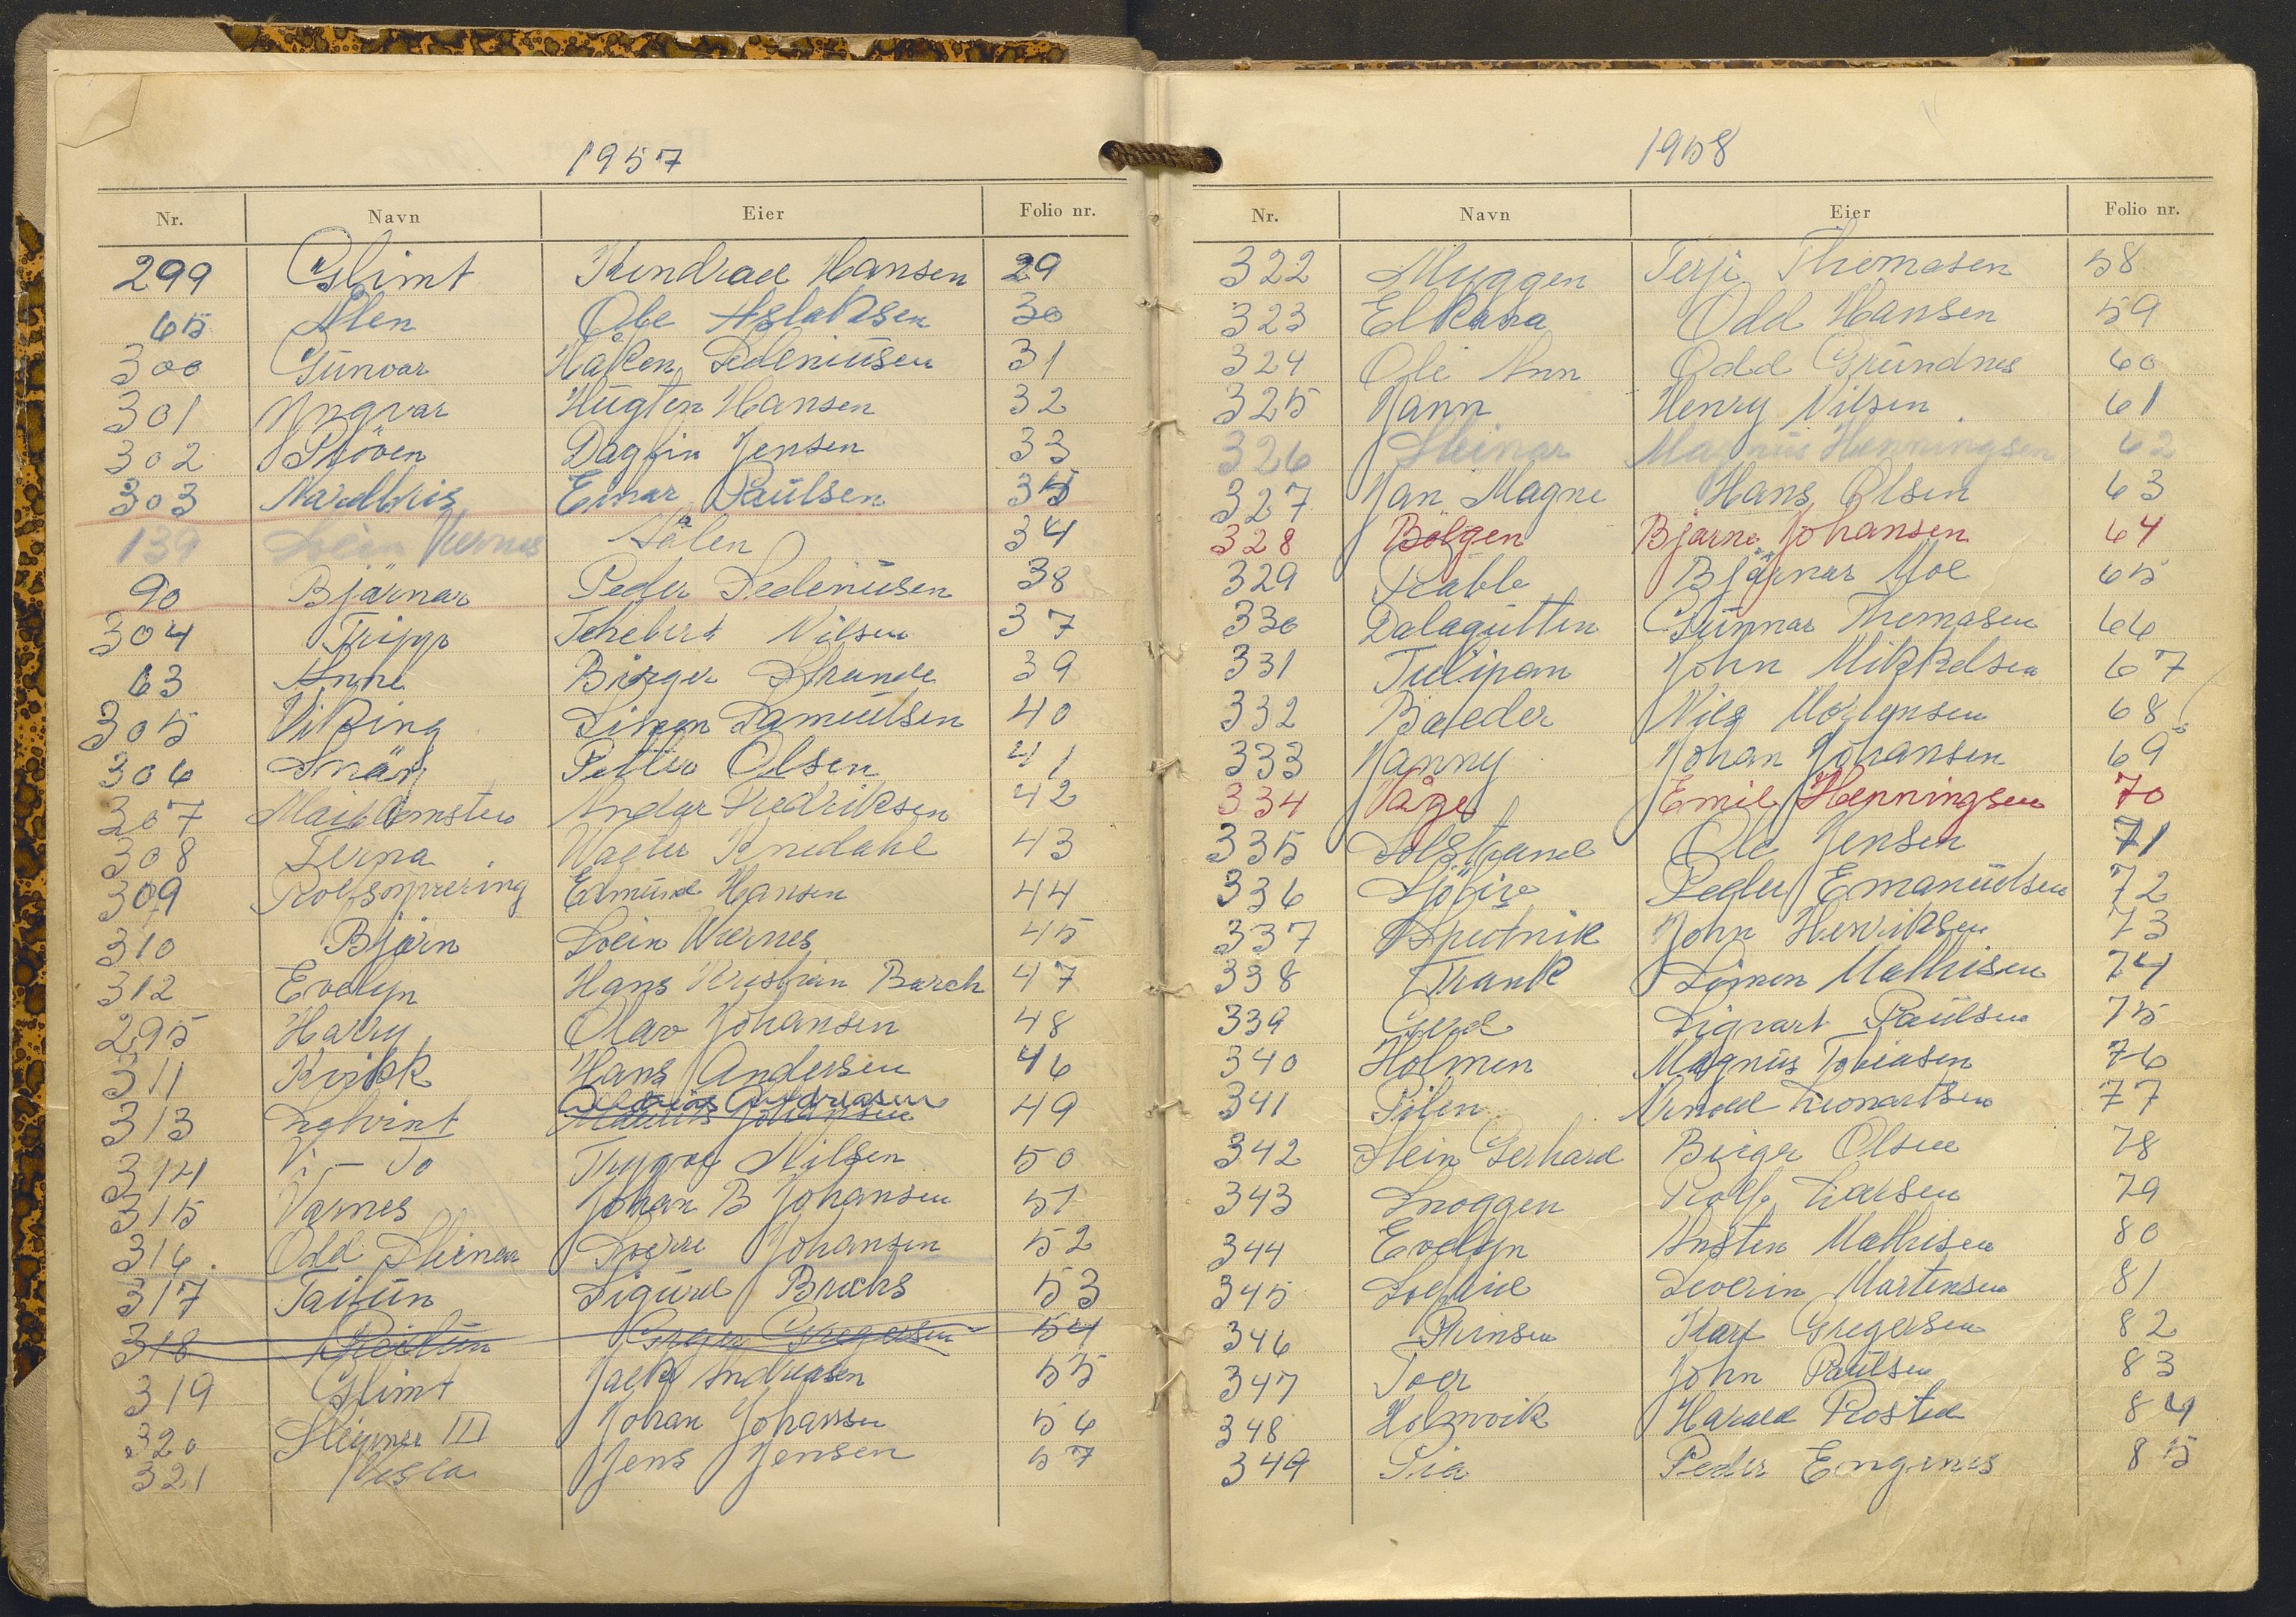 1957
Nr. Navn Eier Folio nr.
299 Glimt Kondrad Hansen 29
65 Alen Ole Aslaksen 30
300 Gunvar Håken Sedeniusen 31
301 Yngvar Hansen 32
302 Pröven Dagfin Jensen 33
303 Nordkris Einar Paulsen 35
139 Svein Vernes Sålen 34
90 Bjärnar Peder Sedeniusen 38
304 Tripp Nilsen 37
63 Anne Birger Strande 39
305 Viking Simon Samuelsen 40
306 Snäri Petter Olsen 41
307 Andor Fredriksen 42
308 Terna Knedahl 43
309 Edmund Hansen 44
310 Björn Svein Wernes 45
312 Evelyn Hans Kristian Barch 47
295 Harry Olav Johansen 48
311 Kvikk Hans Andersen 46
Andreasen
313 Johansen 49
314 Vi - To Trygve Nilsen 50
315 Varnes Johan B Johansen 51
316. Odd Steinar Sverre Johansen 52
317 Taifun Sigurd Brachs 53
318 Gregersen 54
319 Glimt Jack Andreasen 55
320 III Johan Johansen 56
321 Vesla Jens Jensen 57
1958
Nr. Navn Eier Folio nr.
322 Myggen Terje Thomasen 58
323 Elkana Odd Hansen 59
324 Ole Ann Odd Grundnes 60
325 Jann Henry Nilsen 61
326 Steinar Magnus Henningsen 62
327 Jan Magne Hans Olsen 63
328 Bølgen Bjarne Johansen 64
329 Rabb Bjärnar Moe 65
330 Dalagutten Gunnar Thomasen 66
331 Tulipan John Mikkelsen 67
332 Baeder Nils Mortensen 68
333 Janny Johan Johansen 69
334 Våge Emil Henningsen 70
335 Solstrand Ole Jensen 71
336 Sjöliv Peder Emanuelsen 72
337 Sputnik John Henriksen 73
338 Trank Simon Mathisen 74
339 Gerd Sigvart Paulsen 75
340 Holmen Magnus Tobiasen 76
341 Pilen Arnold Leonartsen 77
342 Stein Gerhard Birger Olsen 78
343 Snoggen Rolf Larsen 79
344 Evelyn Austen Mathisen 80
345 Solfrid Severin Martensen 81
346 Prinsen Karf Gregersen 82
347 Toer John Paulsen 83
348 Holmvik Harald Rosted 84
349 Pia Peder Engenes 85